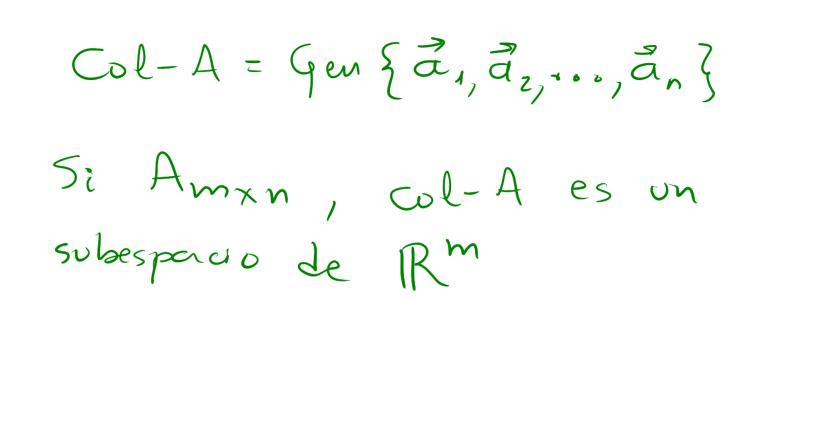 Col-A = Gen { a⃗₁, a⃗₂, ..., a⃗ₙ }
Si Aₘₓₙ , col-A es un
subespacio de ℝᵐ